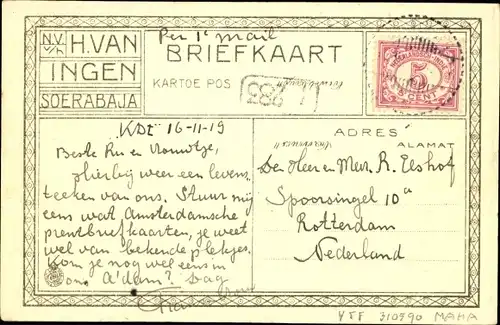 Per 1e mail
N.V. v/h H. VAN INGEN SOERABAJA
BRIEFKAART
KARTOE POS
283
NEDERLANDSCH-INDIË
5
CENT
KDI 16-11-19
Beste Ru en Vrouwtje,
Hierbij weer een levens
teeken van ons. Stuur mij
eens wat Amsterdamsche
prentbriefkaarten, je weet
wel van bekende plekjes.
Kom je nog wel eens in
ons A'dam? Dag
ADRES
ALAMAT
Den Heer en Mev. R. Elshof
Spoorsingel 10a
Rotterdam
Nederland
310990 MAHA